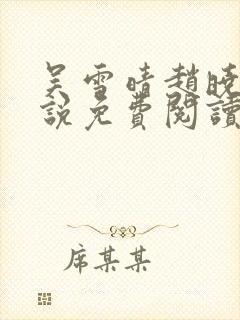 吴雪晴趙曉
說免費閱讀
席某某